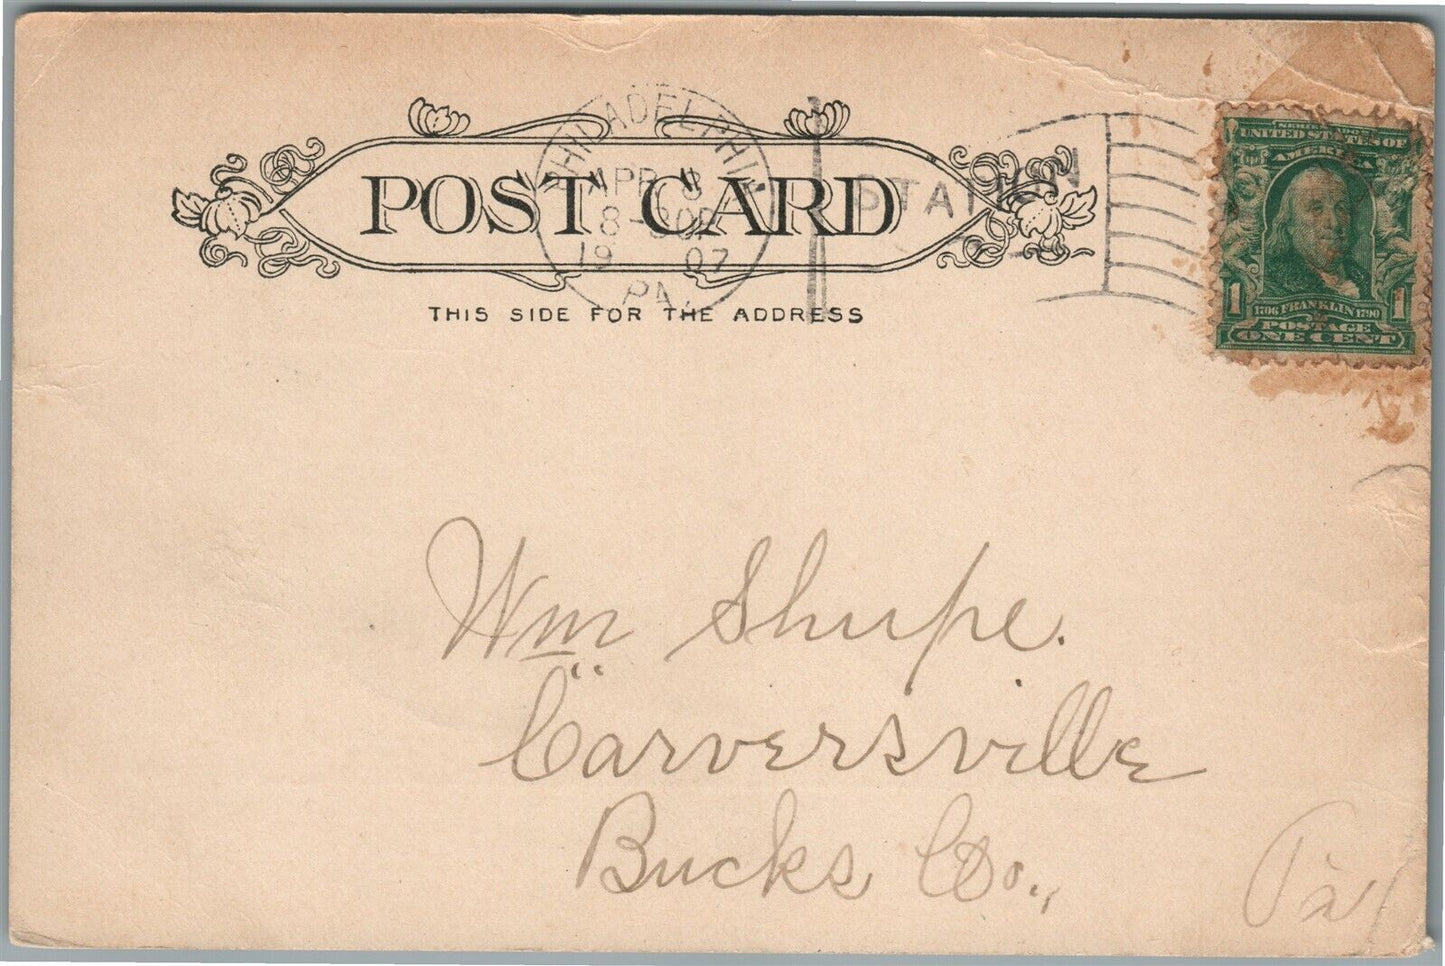 POST CARD
THIS SIDE FOR THE ADDRESS
PHILADELPHIA
APR 3
8-30P
1907
PA.
STATION
SERIES 1902
UNITED STATES OF
AMERICA
1 1706 FRANKLIN 1790 1
POSTAGE
ONE CENT
Wm Shupe.
Carversville
Bucks Co.,
Pa